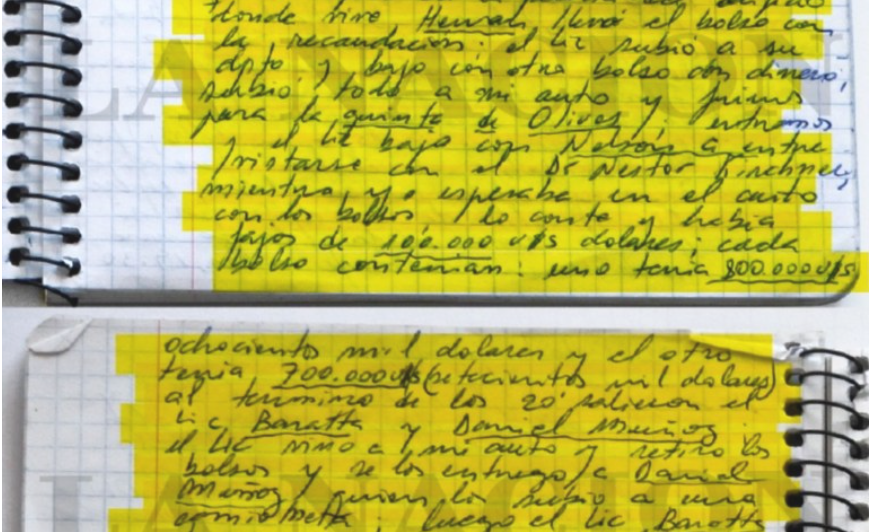 donde vive Hernan llevó el bolso con
la recaudación. el lic subió a su
dpto y bajo con otro bolso con dinero,
subió todo a mi auto y fuimos
para la quinta de Olivos, entramos
y el lic bajo con Nelson a entre
vistarse con el Dr Nestor Kirchner,
mientra yo esperaba en el auto
con los bolsos, lo conte y habia
fajos de 100.000 u$s dolares; cada
bolso contenian: uno tenia 800.000 u$s
ochocientos mil dolares y el otro
tenia 700.000 u$s (setecientos mil dolares)
al termino de los 20' salieron el
Lic Baratta y Daniel Muñoz.
el Lic vino a mi auto y retiro los
bolsos y se los entrego a Daniel
Muñoz, quien los subio a una
camionetta, luego el Lic Baratta
LA NACION
LA NACION